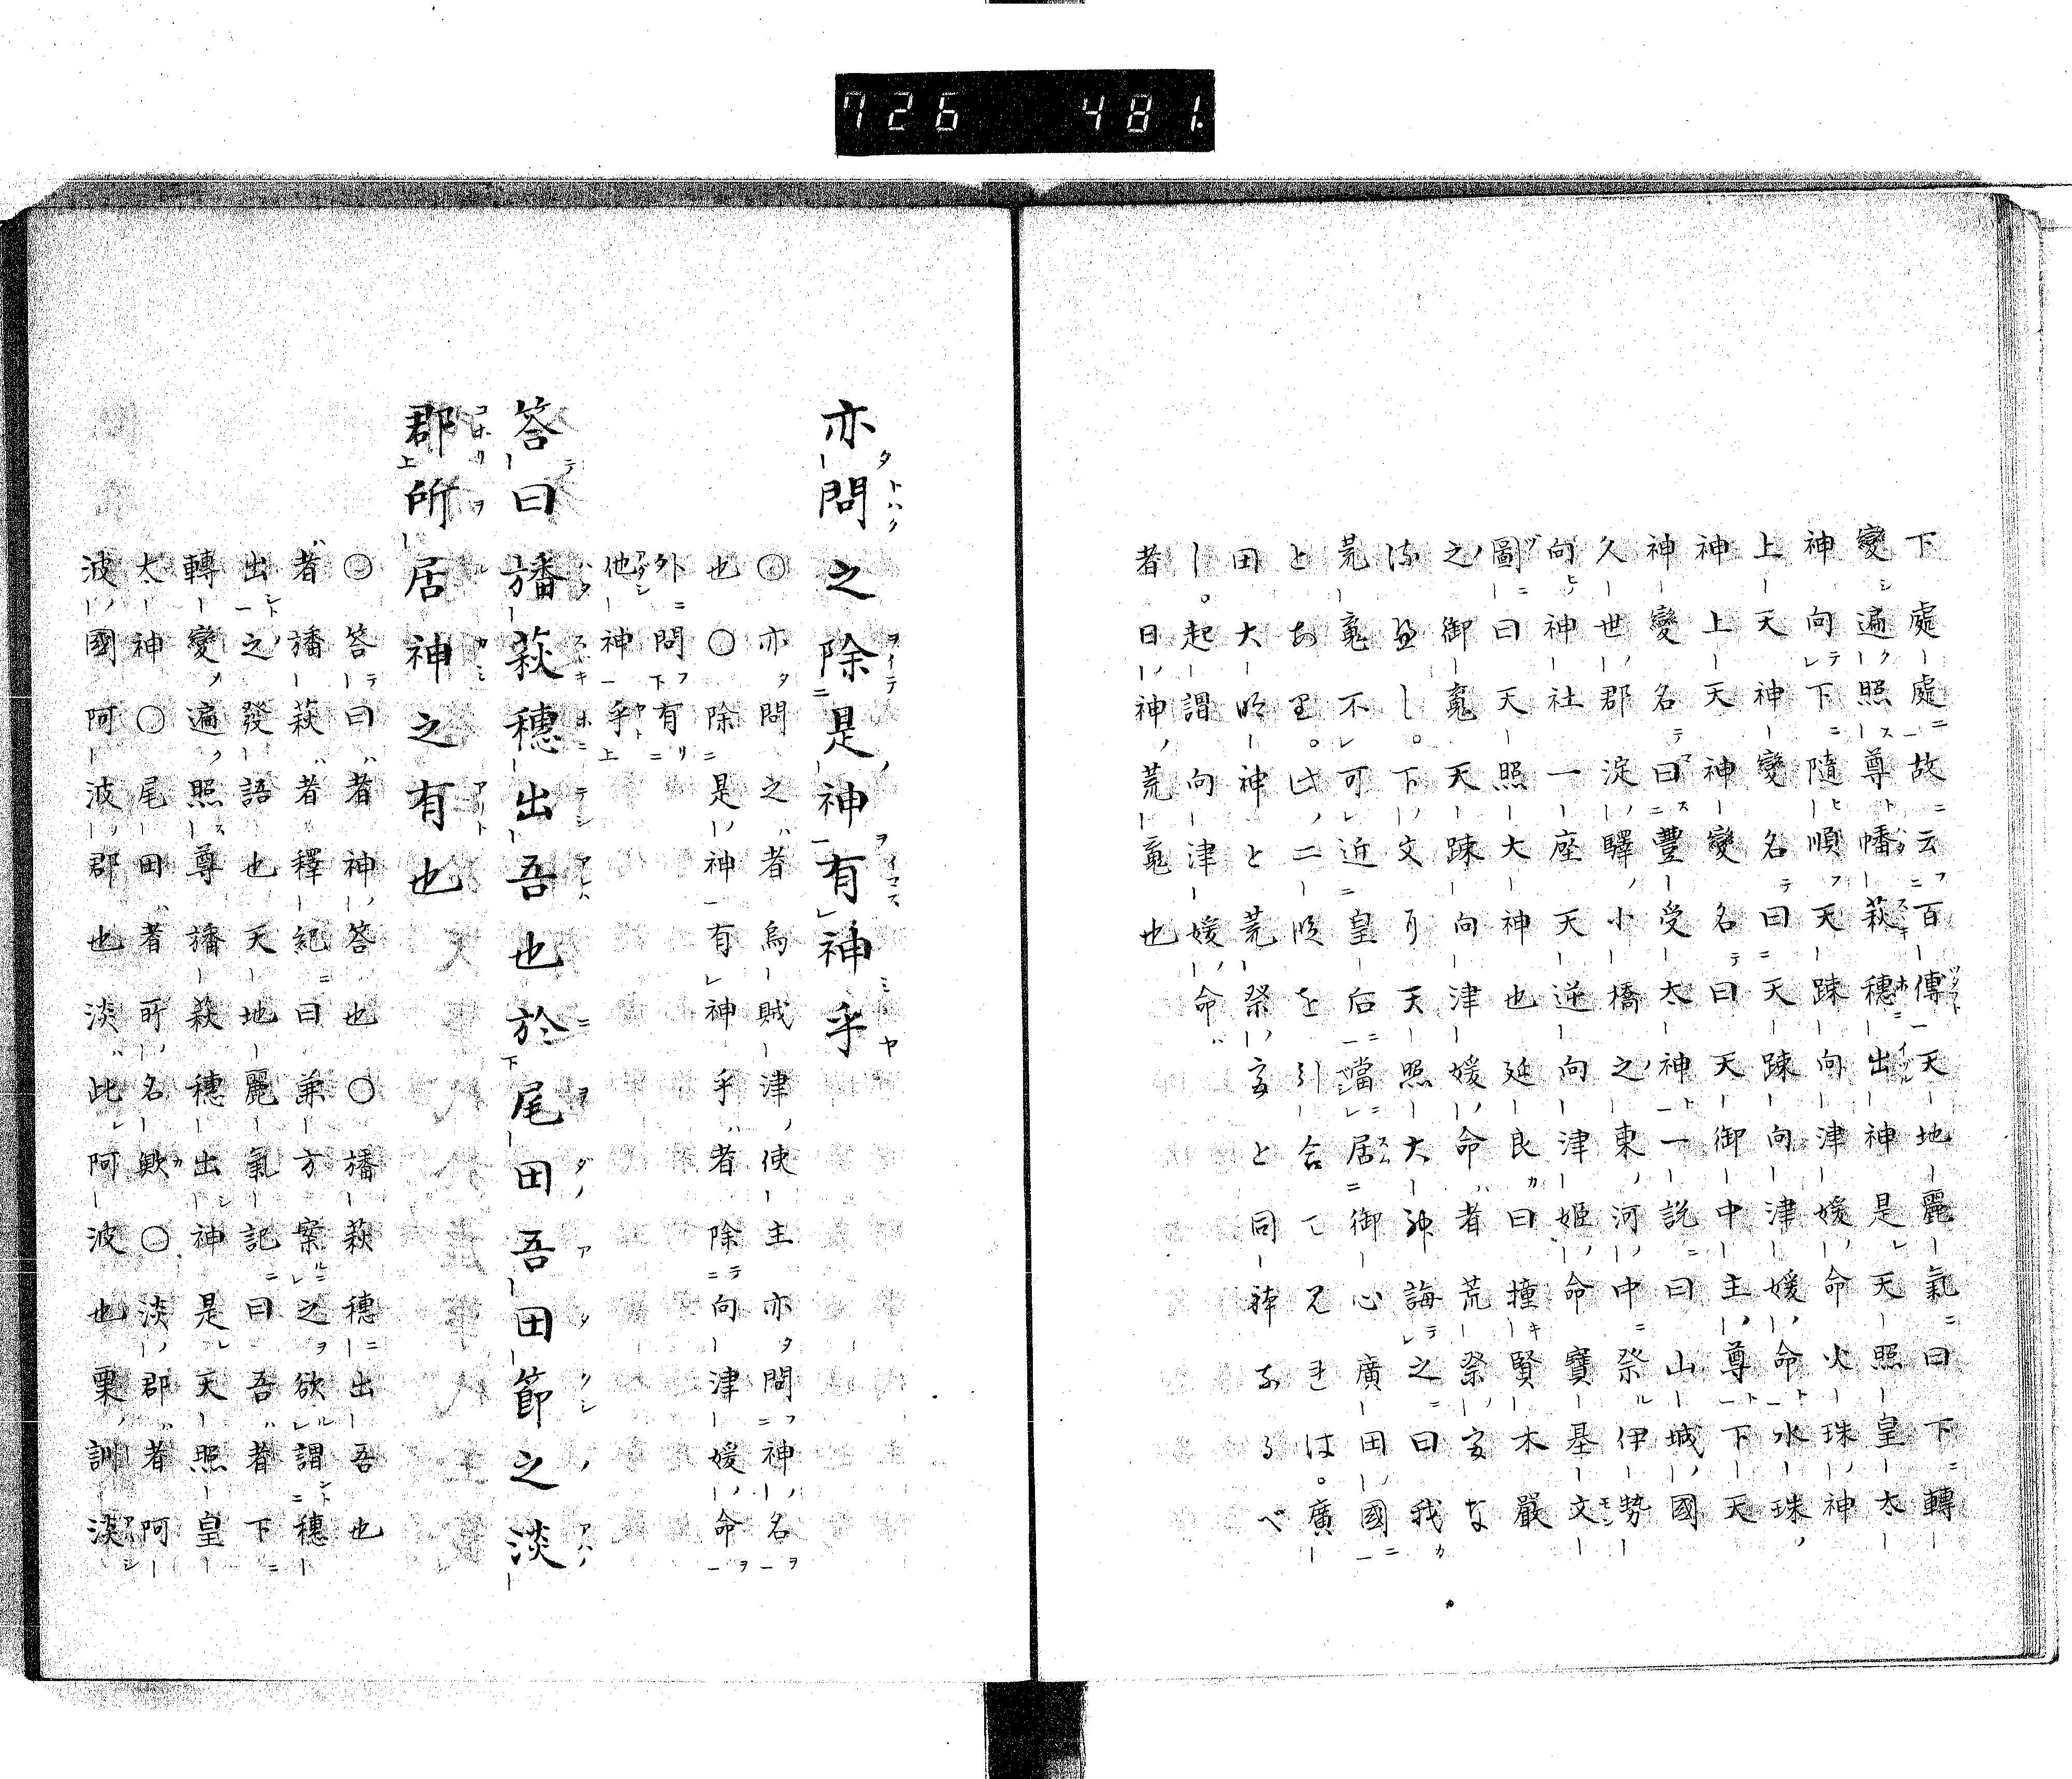 726 481
下處處故云百傳天地麗氣曰下轉
變遍照尊幡萩穗出神是天照皇太
神向下隨順天踈向津媛命火珠神
上天神變名曰天踈向津媛命水珠
神上天神變名曰天御中主尊下天
神變名曰豐受太神一說曰山城國
久世郡淀驛小橋之東河中祭伊勢
向神社一座天逆向津姬命寶基文
圖曰天照大神也延良曰撞賢木嚴
之御魂天踈向津媛命者荒祭宮な
荒魂不可近皇后當居御心廣田國
田大明神と荒祭宮と同神なるべ
し。起謂向津媛命
者日神荒魂也
亦問之除是神有神乎
〇亦問之者烏賊津使主亦問神名
也〇除是神有神乎者除向津媛命
外問有
他神乎
答曰旛萩穗出吾也於尾田吾田節之淡
郡所居神之有也
〇答曰者神答也〇旛萩穗出吾也
者旛萩者釋紀曰兼方案之欲謂穗
出之發語也天地麗氣記曰吾者下
轉變遍照尊旛萩穗出神是天照皇
太神〇尾田者所名歟〇淡郡者阿
波國阿波郡也淡此阿波也粟訓淡